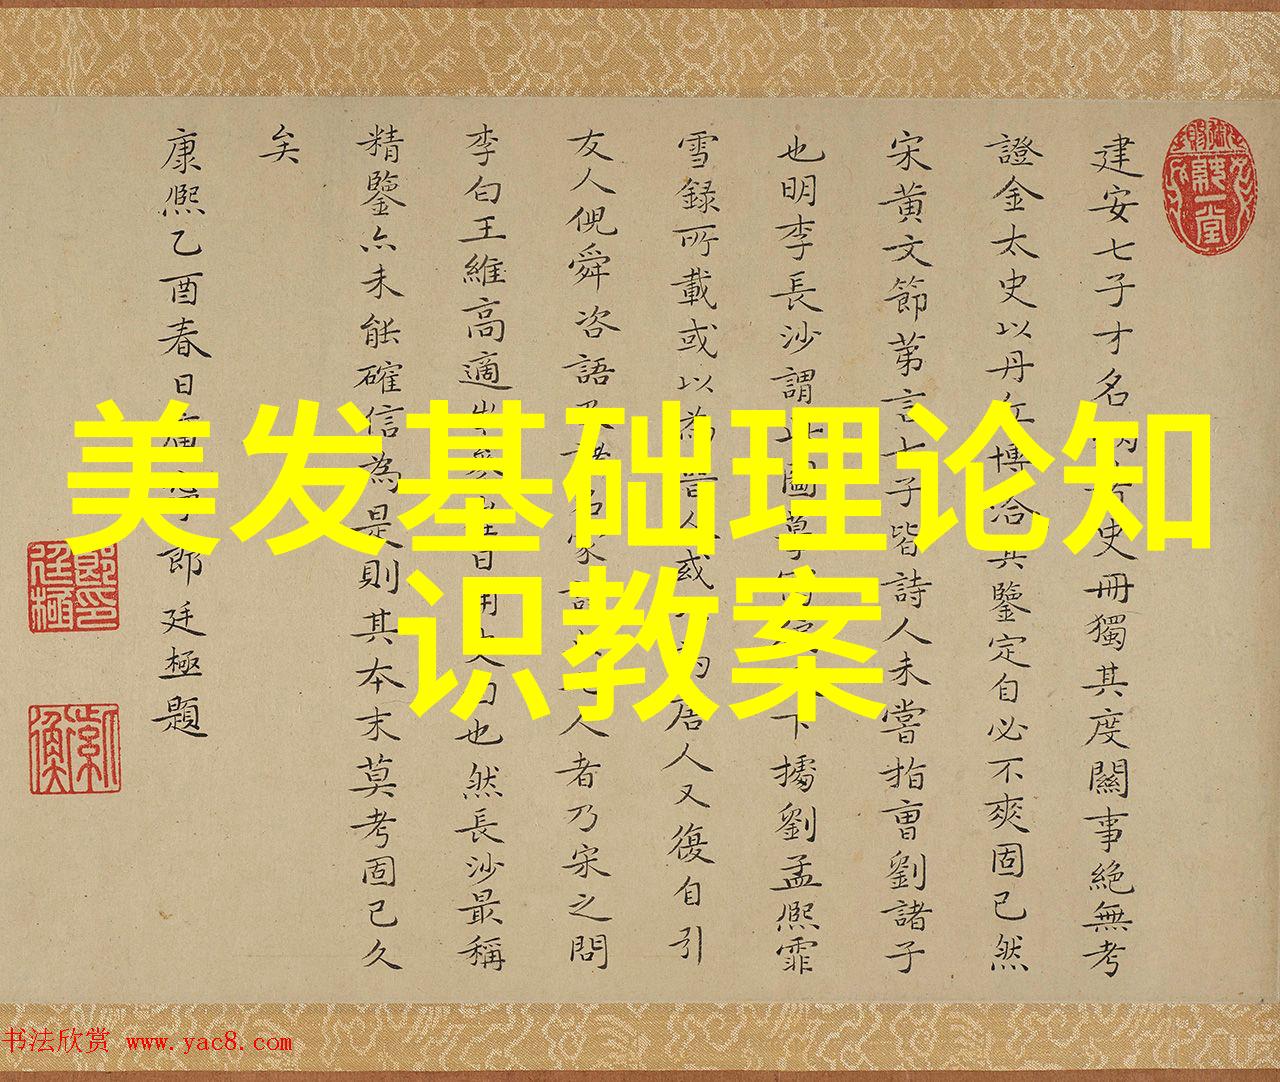 建安七子才名
史冊獨其度關事絶無考
證金太史以丹
博洽其鑒定自必不爽固已然
宋黃文節第言七子皆詩人未嘗指曹劉諸子
也明李長沙謂此圖草
下擄劉孟熈霏
雪録所載或以為晉人或
為唐人又復自引
友人倪舜咨語
人者乃宋之問
李白王維高適岑參
也然長沙最稱
精鑒亦未能確信為是則其本末莫考固已久
矣
康熈乙酉春日
郎廷極題
郎廷極印
紫衡
御賜純一堂
美发基础理论知
识教案
书法欣赏 www.yac8.com